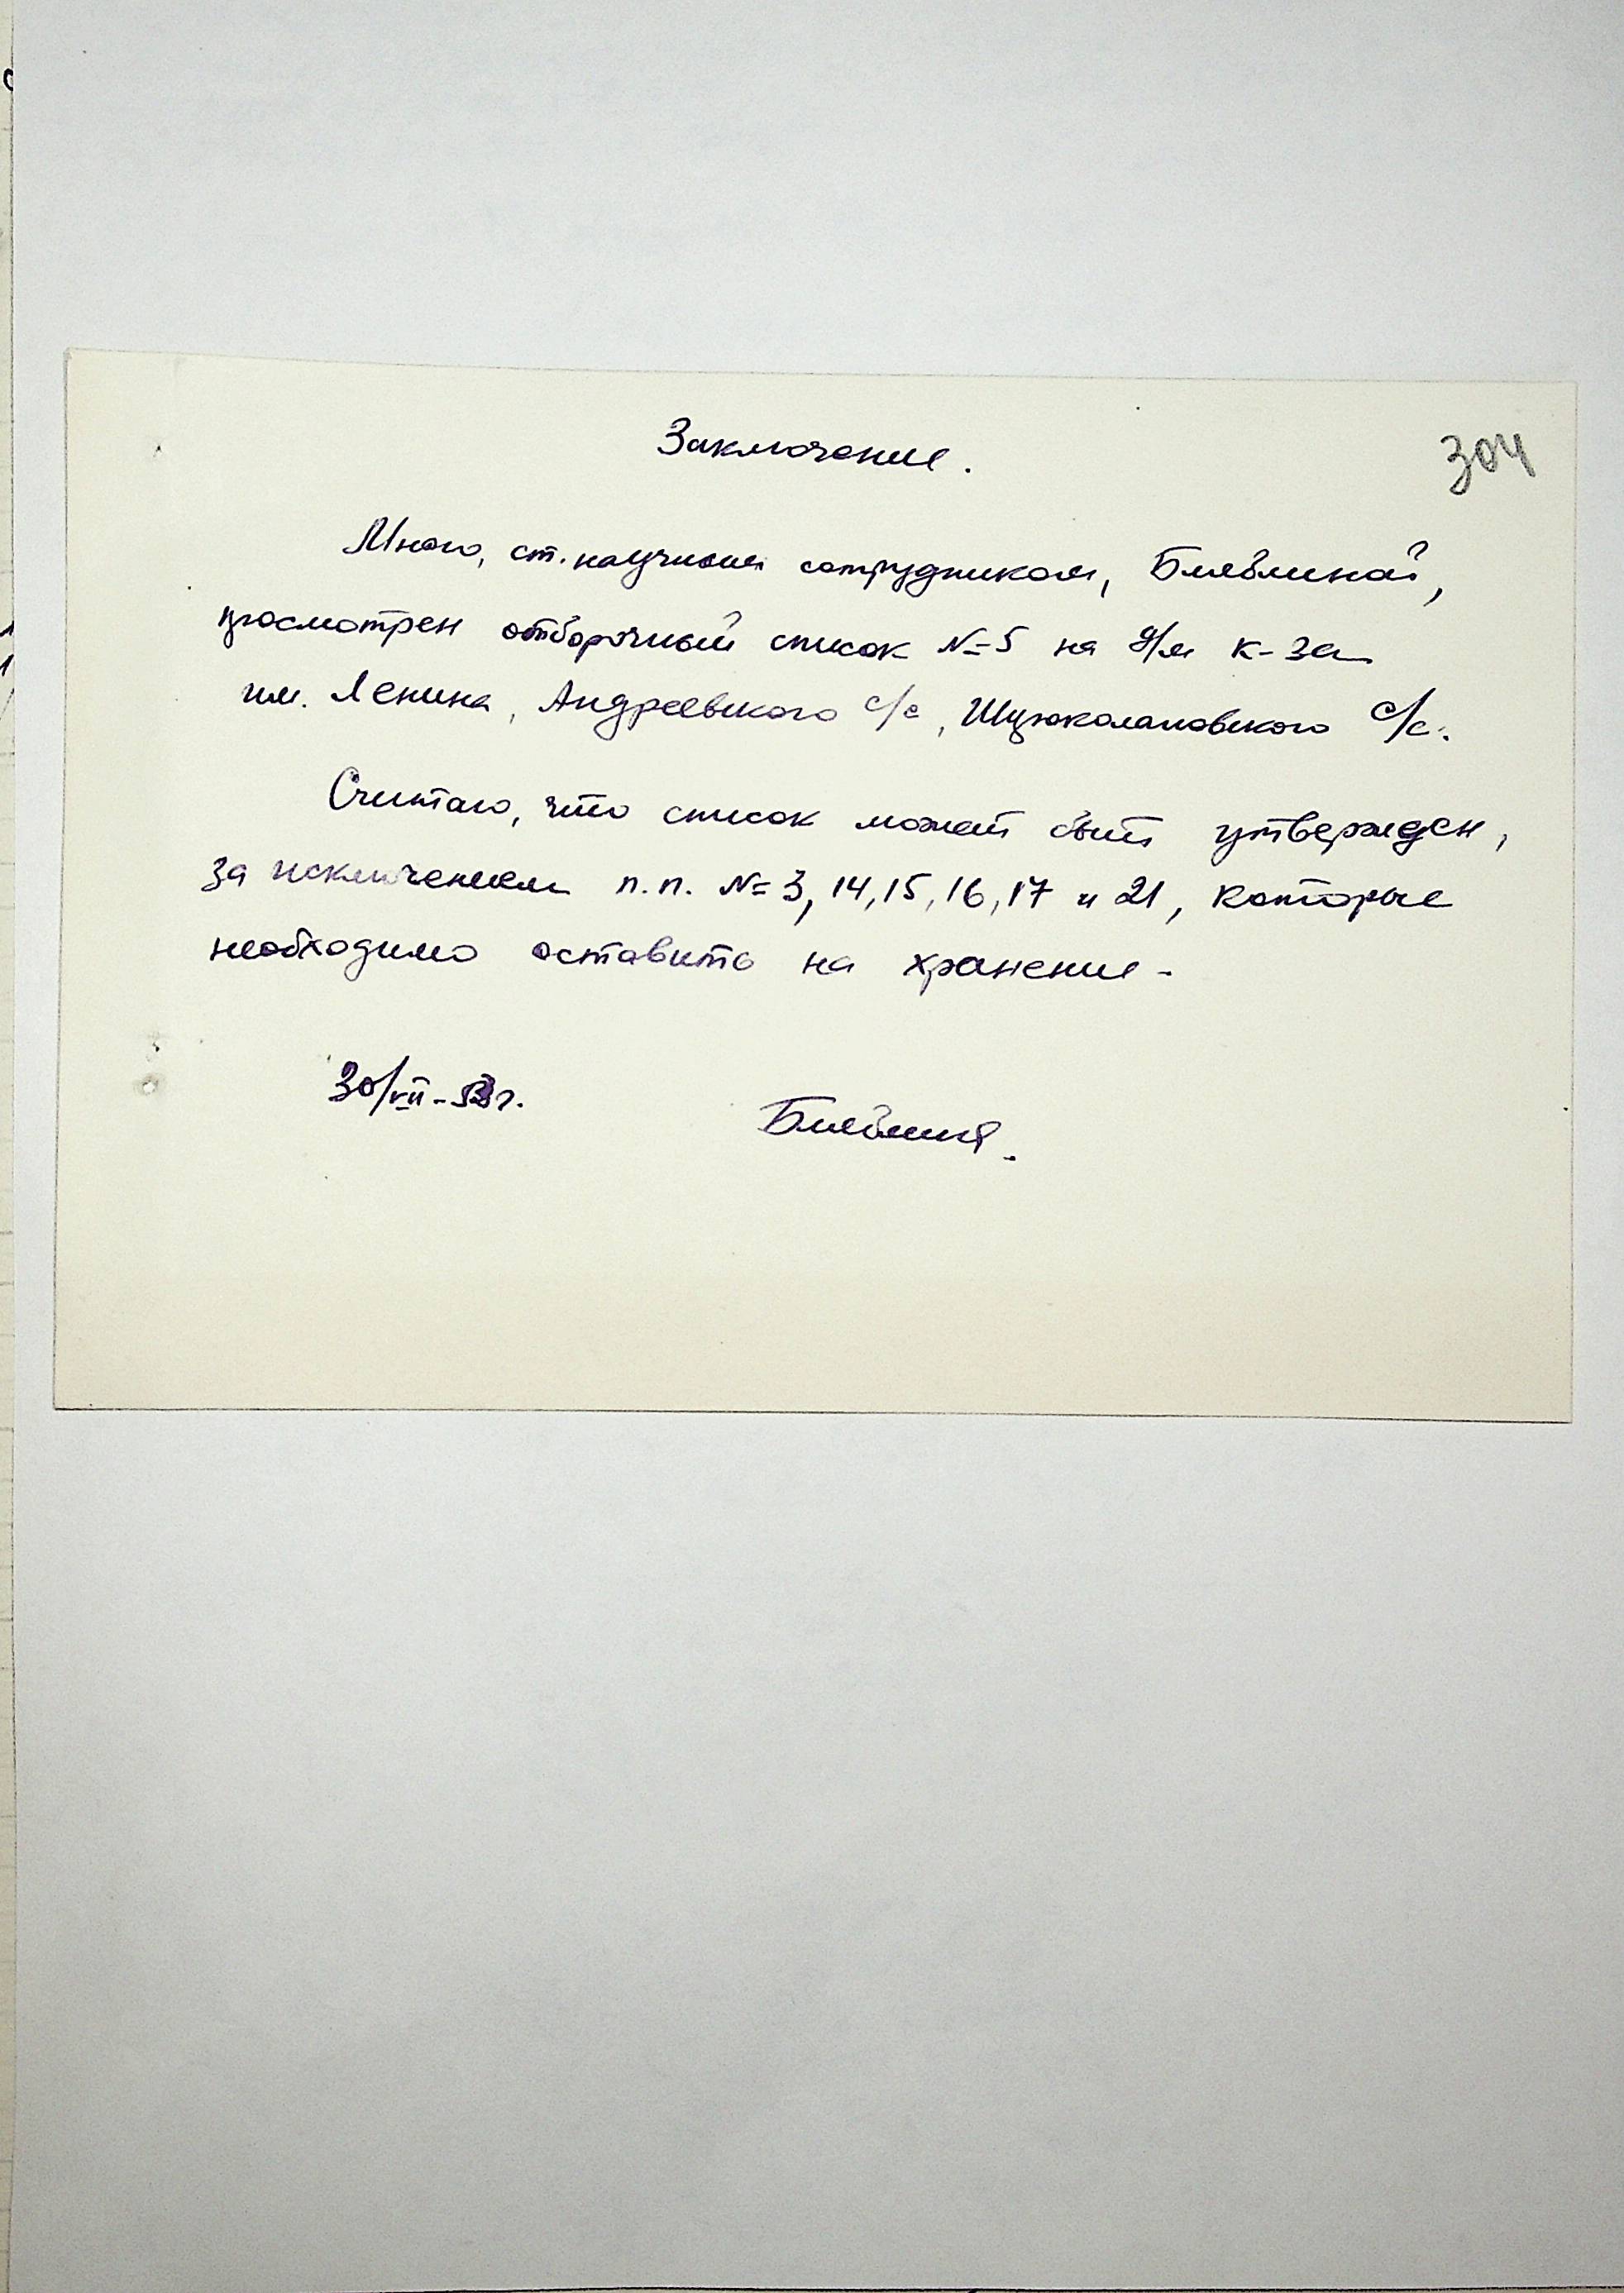 Заключение.
304
Мною, ст. научным сотрудником,
просмотрен отборочный список №5 на д/м к-за
им. Ленина, Андреевского с/с, с/с.
Считаю, что список может быть утвержден,
за исключением п.п. №3, 14, 15, 16, 17 и 21, которые
необходимо оставить на хранение.
30/VII-